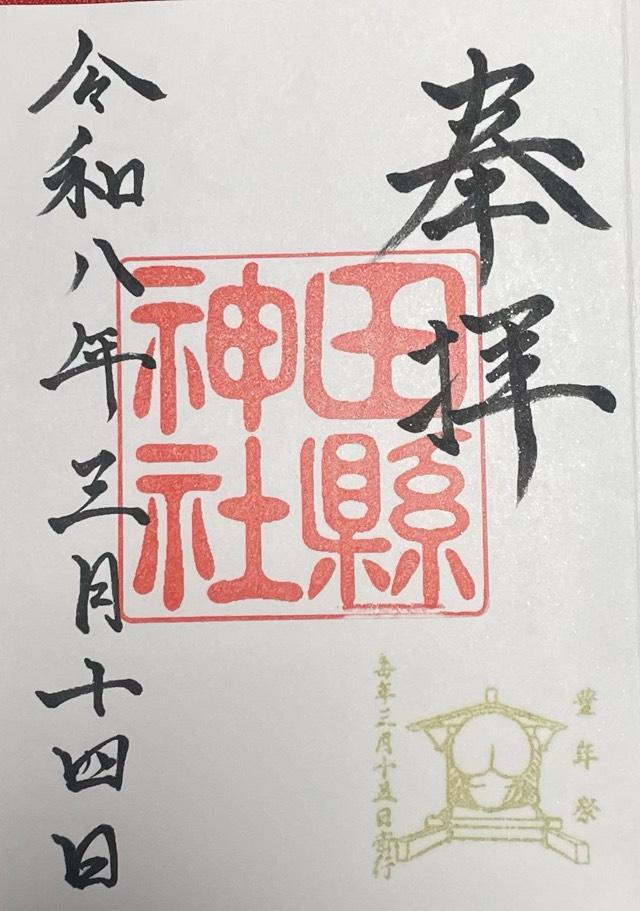 奉拝
田縣
神社
令和八年三月十四日
豊年祭
毎年三月十五日斎行